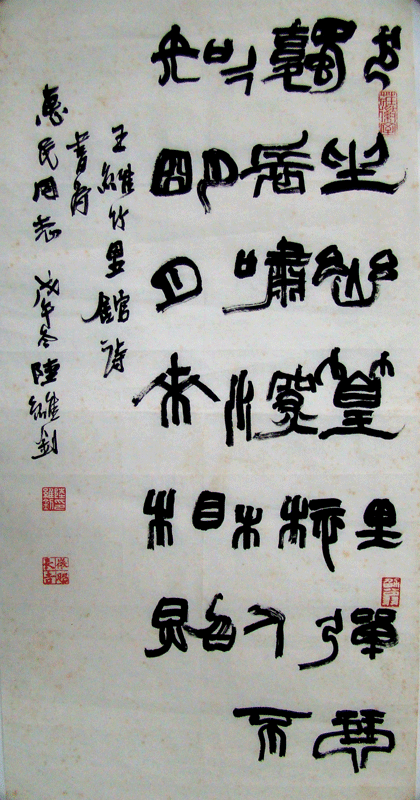 獨坐幽篁里彈琴
復長嘯深林人不
知明月來相照
王維竹里館詩
書
惠民同志 戊午冬 陸維釗